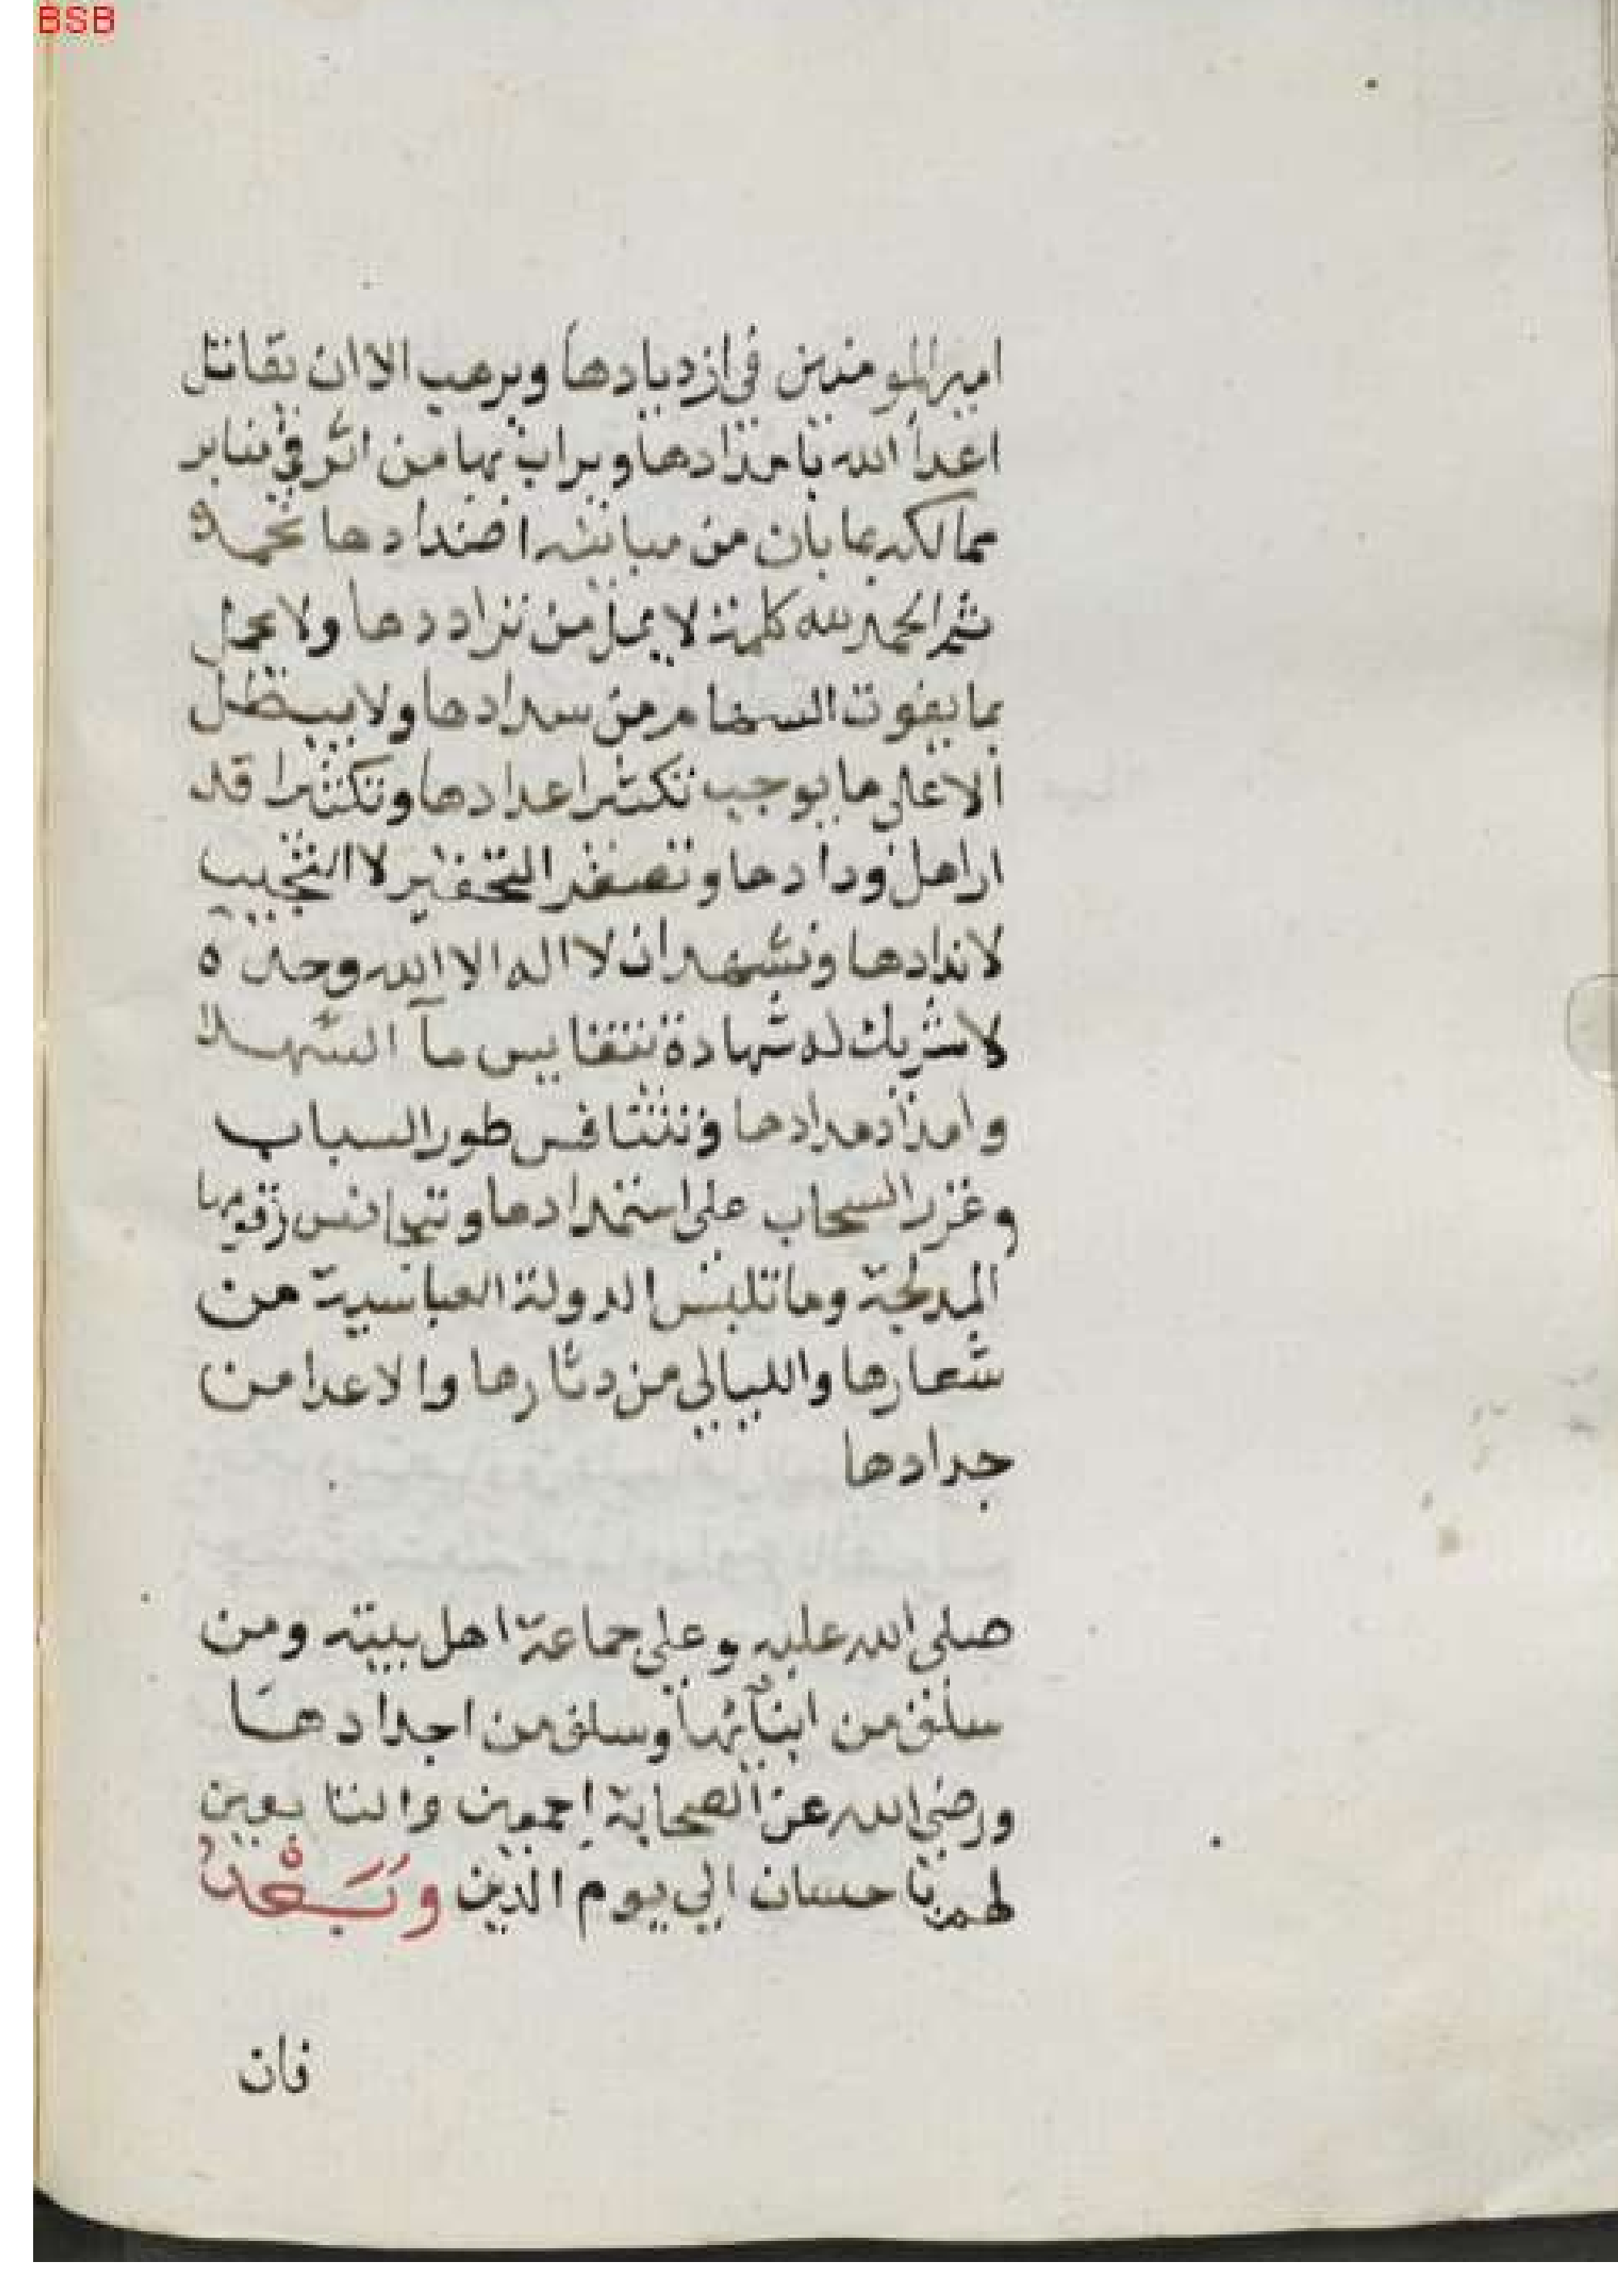 BSB
امير المومنين في ازديادها ويرهب الا ان يقاتل
اعدا الله بامدادها ويراب بها من اثر في منابر
ممالكه بما بان من مباينة اضدادها نحمده
ثم الحمد لله كلمة لا يمل من تردادها ولا يحل
بما يفوت السهام من سدادها ولا يبطل
الا على ما يوجب تكثير اعدادها وتكثير اقد
ار اهل ودادها وتصغير التحقير لا التحبيب
لاندادها ونشهد ان لا اله الا الله وحده
لا شريك له شهادة تتقايس مآ الشهدا
وامداد مدادها وتتنافس طور السباب
وغرر السحاب على استمدادها وتتجانس رقومها
المدبجة وما تلبس الدولة العباسية من
شعارها والليالي من دثارها والاعدا من
جدادها
صلى الله عليه وعلى جماعة اهل بيته ومن
سلف من ابنآئها وسلف من اجدادها
ورضي الله عن الصحابة اجمعين والتابعين
لهم باحسان الي يوم الدين وبعد
فان